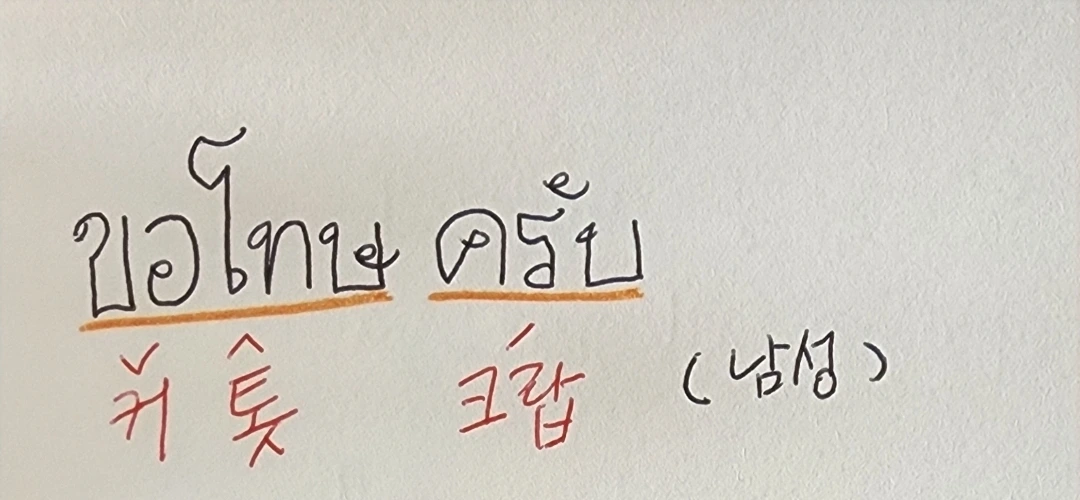 ขอโทษ ครับ
커 톳 크랍 (남성)